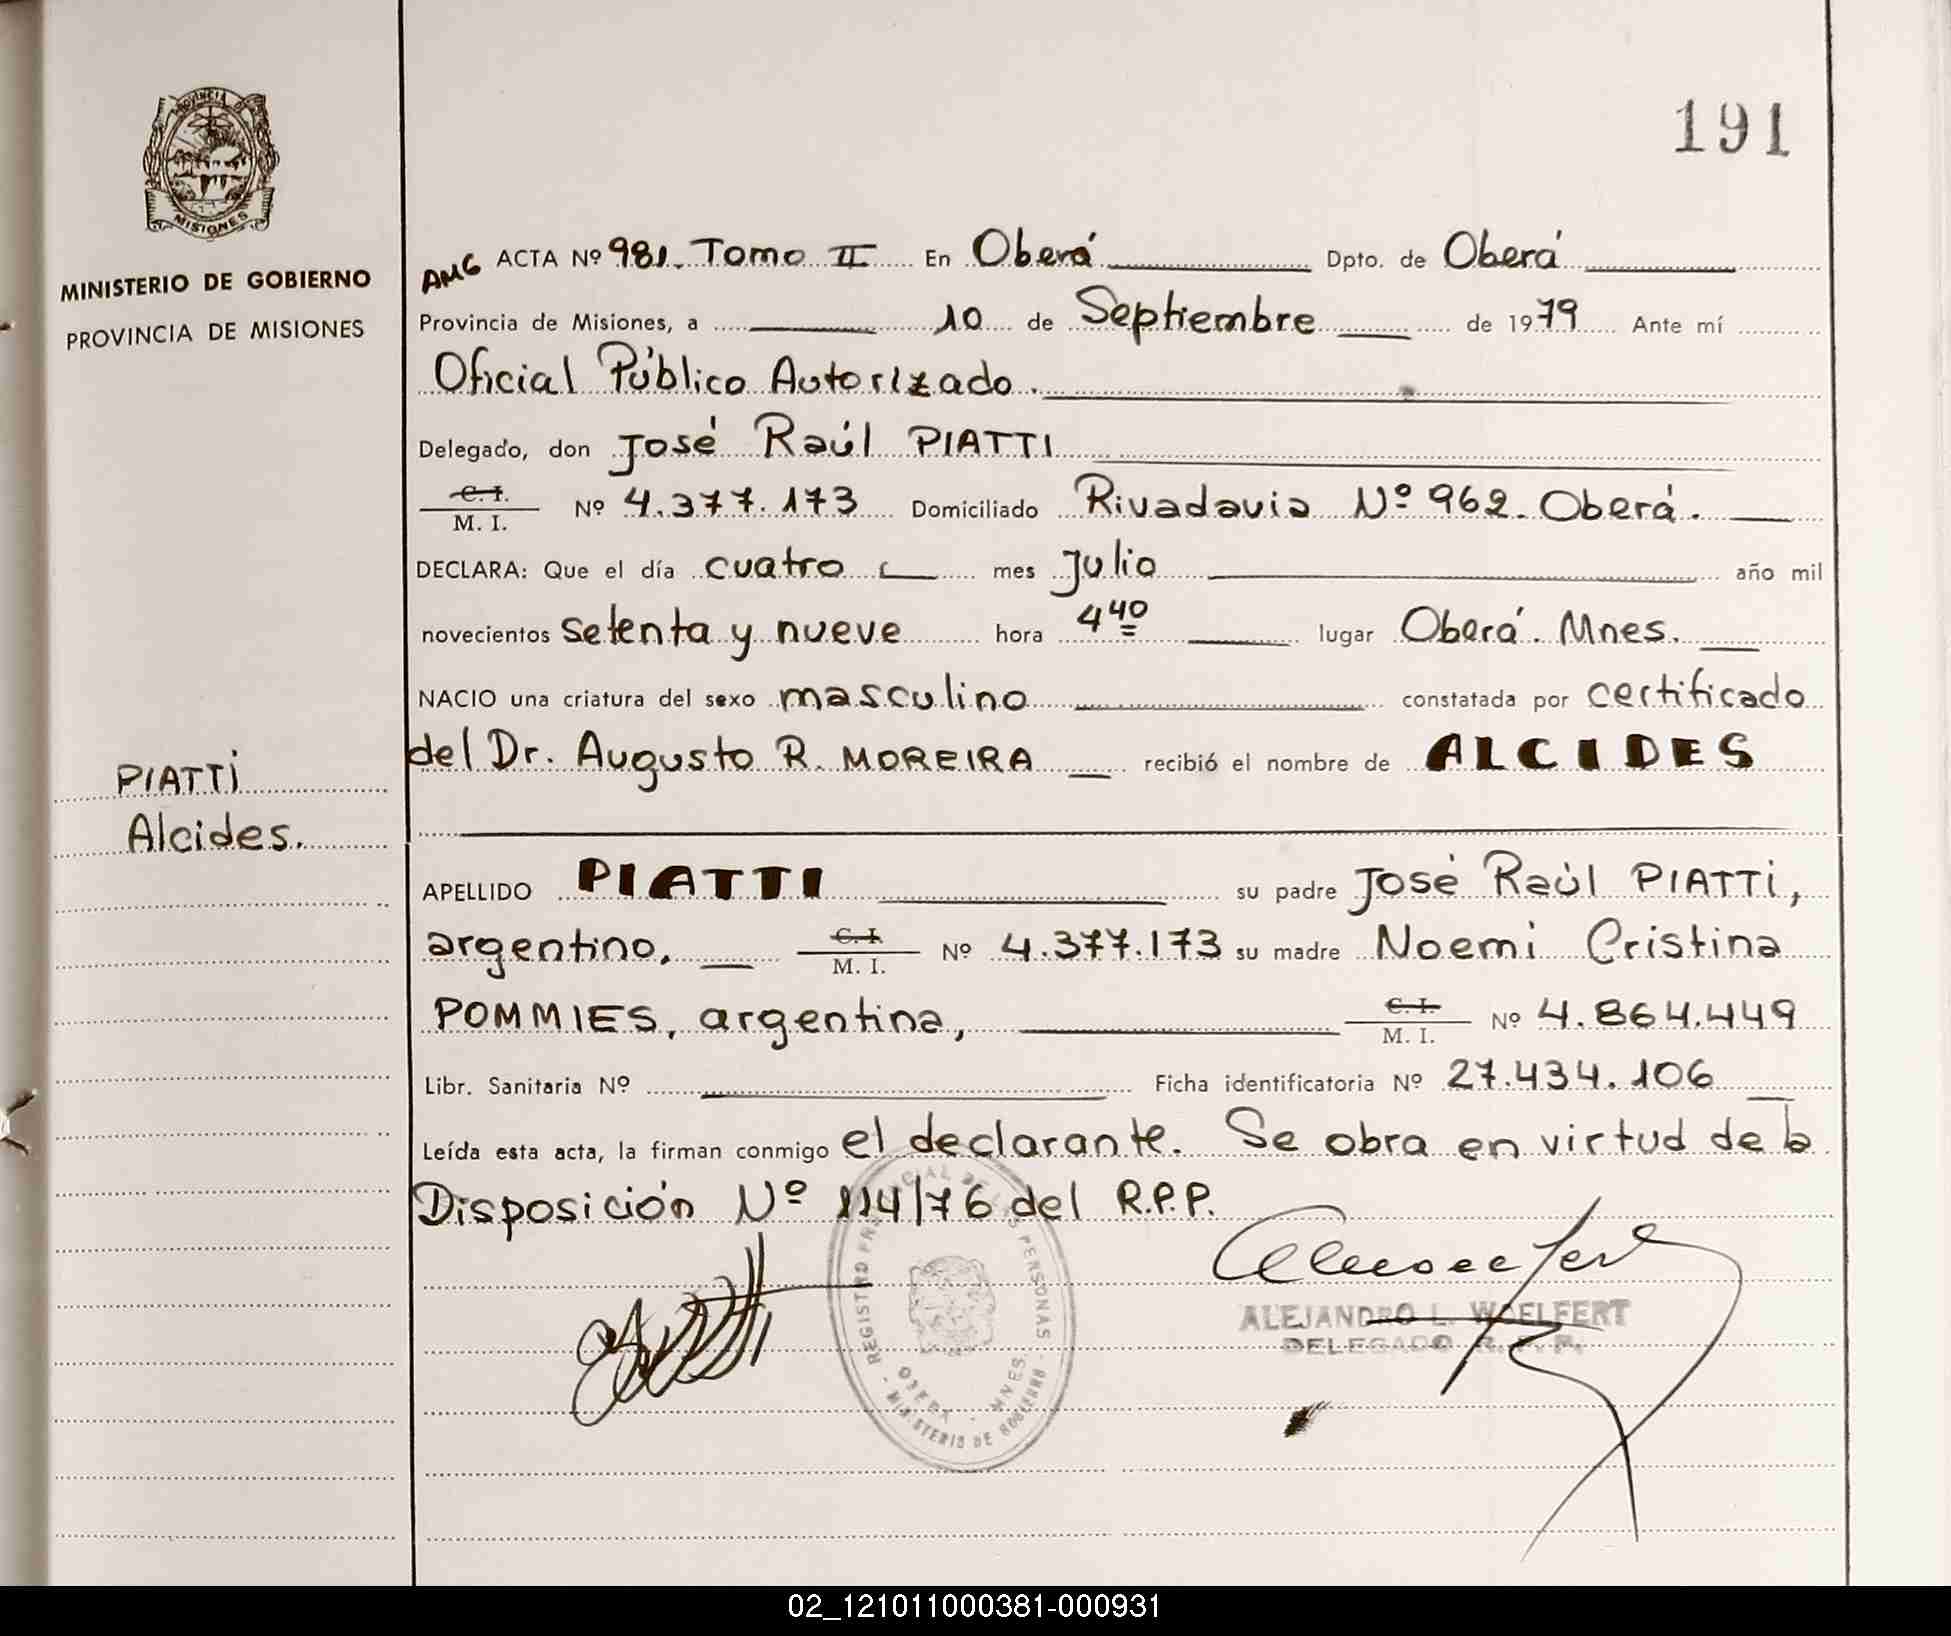 191
PROVINCIA DE
MISIONES
MINISTERIO DE GOBIERNO
PROVINCIA DE MISIONES
AMG ACTA Nº 981. Tomo II En Oberá Dpto. de Oberá
Provincia de Misiones, a 10 de Septiembre de 1979 Ante mí
Oficial Público Autorizado.
Delegado, don José Raúl PIATTI
C. I.
M. I. Nº 4.377.173 Domiciliado Rivadavia Nº 962. Oberá.
DECLARA: Que el día cuatro mes Julio año mil
novecientos setenta y nueve hora 4 40 lugar Oberá. Mnes.
NACIO una criatura del sexo masculino constatada por certificado
del Dr. Augusto R. MOREIRA recibió el nombre de ALCIDES
PIATTI
Alcides.
APELLIDO PIATTI su padre José Raúl PIATTI,
argentino, C. I. M. I. Nº 4.377.173 su madre Noemi Cristina
POMMIES, argentina, C. I. M. I. Nº 4.864.449
Libr. Sanitaria Nº Ficha identificatoria Nº 27.434.106
Leída esta acta, la firman conmigo el declarante. Se obra en virtud de la
Disposición Nº 114/76 del R.P.P.
REGISTRO PROVINCIAL DE LAS PERSONAS
OBERA - MNES.
- MINISTERIO DE GOBIERNO -
ALEJANDRO L. WOELFERT
DELEGADO R. P. P.
02_121011000381-000931